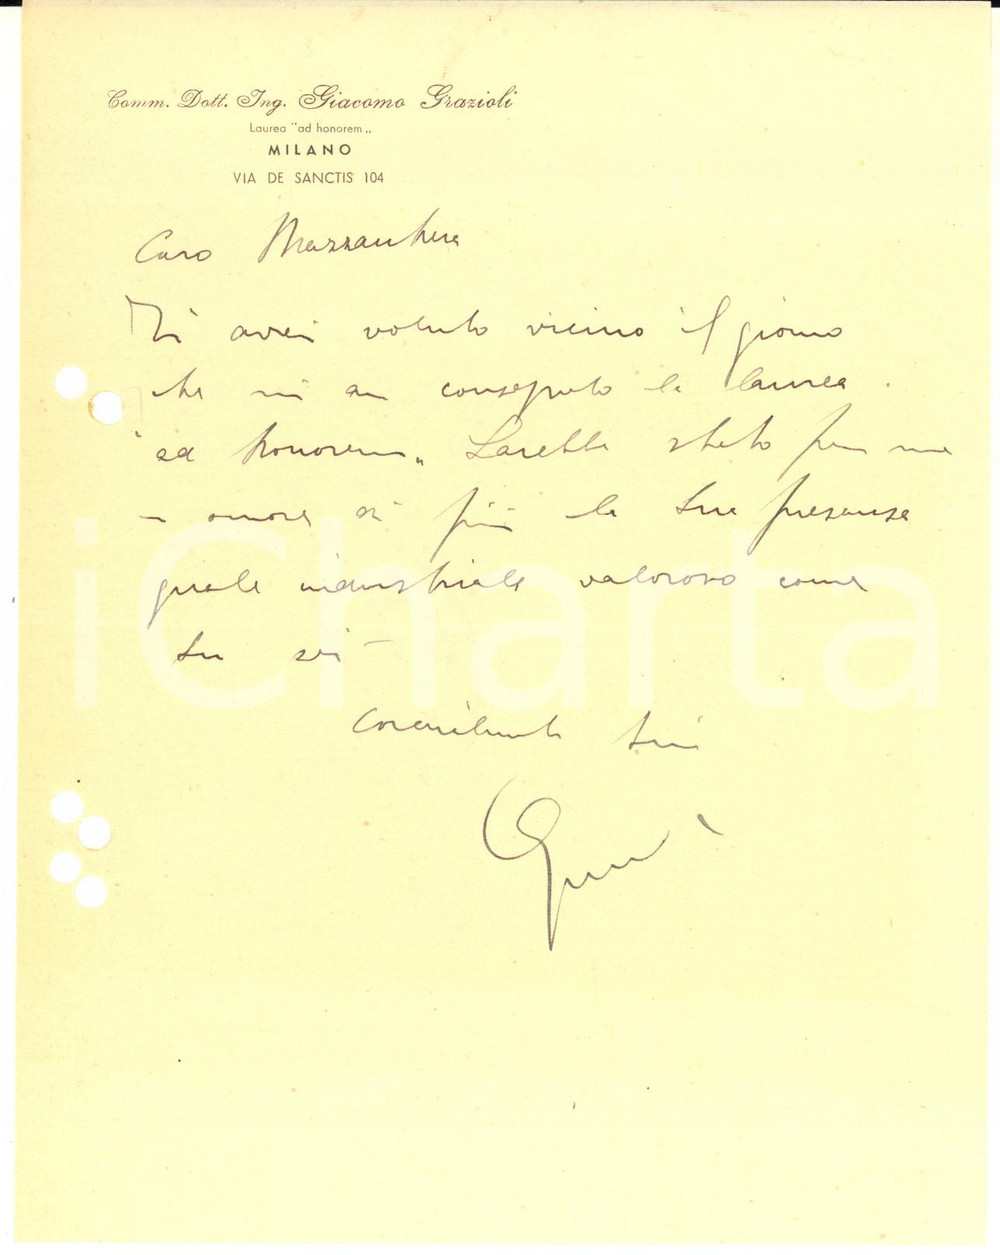 Comm. Dott. Ing. Giacomo Grazioli
Laurea "ad honorem„
MILANO
VIA DE SANCTIS 104
Caro Mazzanhera
Ti avrei voluto vicino il giorno
che mi an consegnato la laurea
"ad honorem„ Sarebbe stato per me
un onore di più la tua presenza
quale industriale valoroso come
tu sei
Cordialmente tuo
iCharta